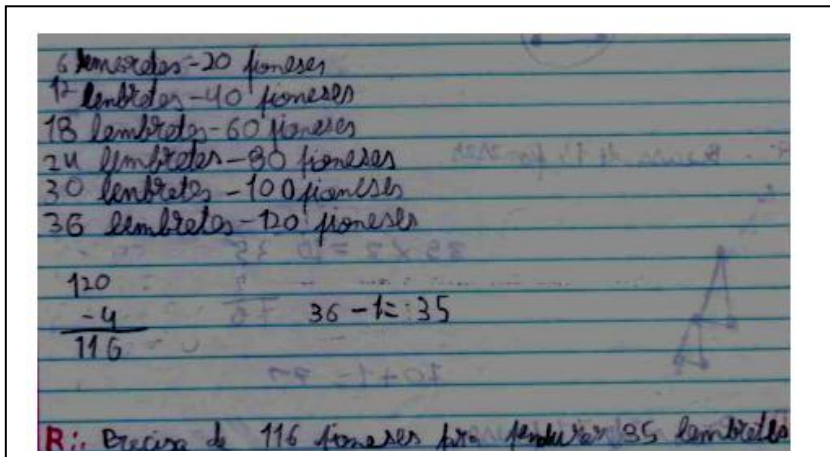 6 lembretes-20 pioneses
12 lenbretes-40 pioneses
18 lembretes-60 pioneses
24 lembretes-80 pioneses
30 lenbretes-100 pioneses
36 lembretes-120 pioneses
120
-4
116
36-1=35
R: Precisa de 116 pioneses pra pendurar 35 lembretes